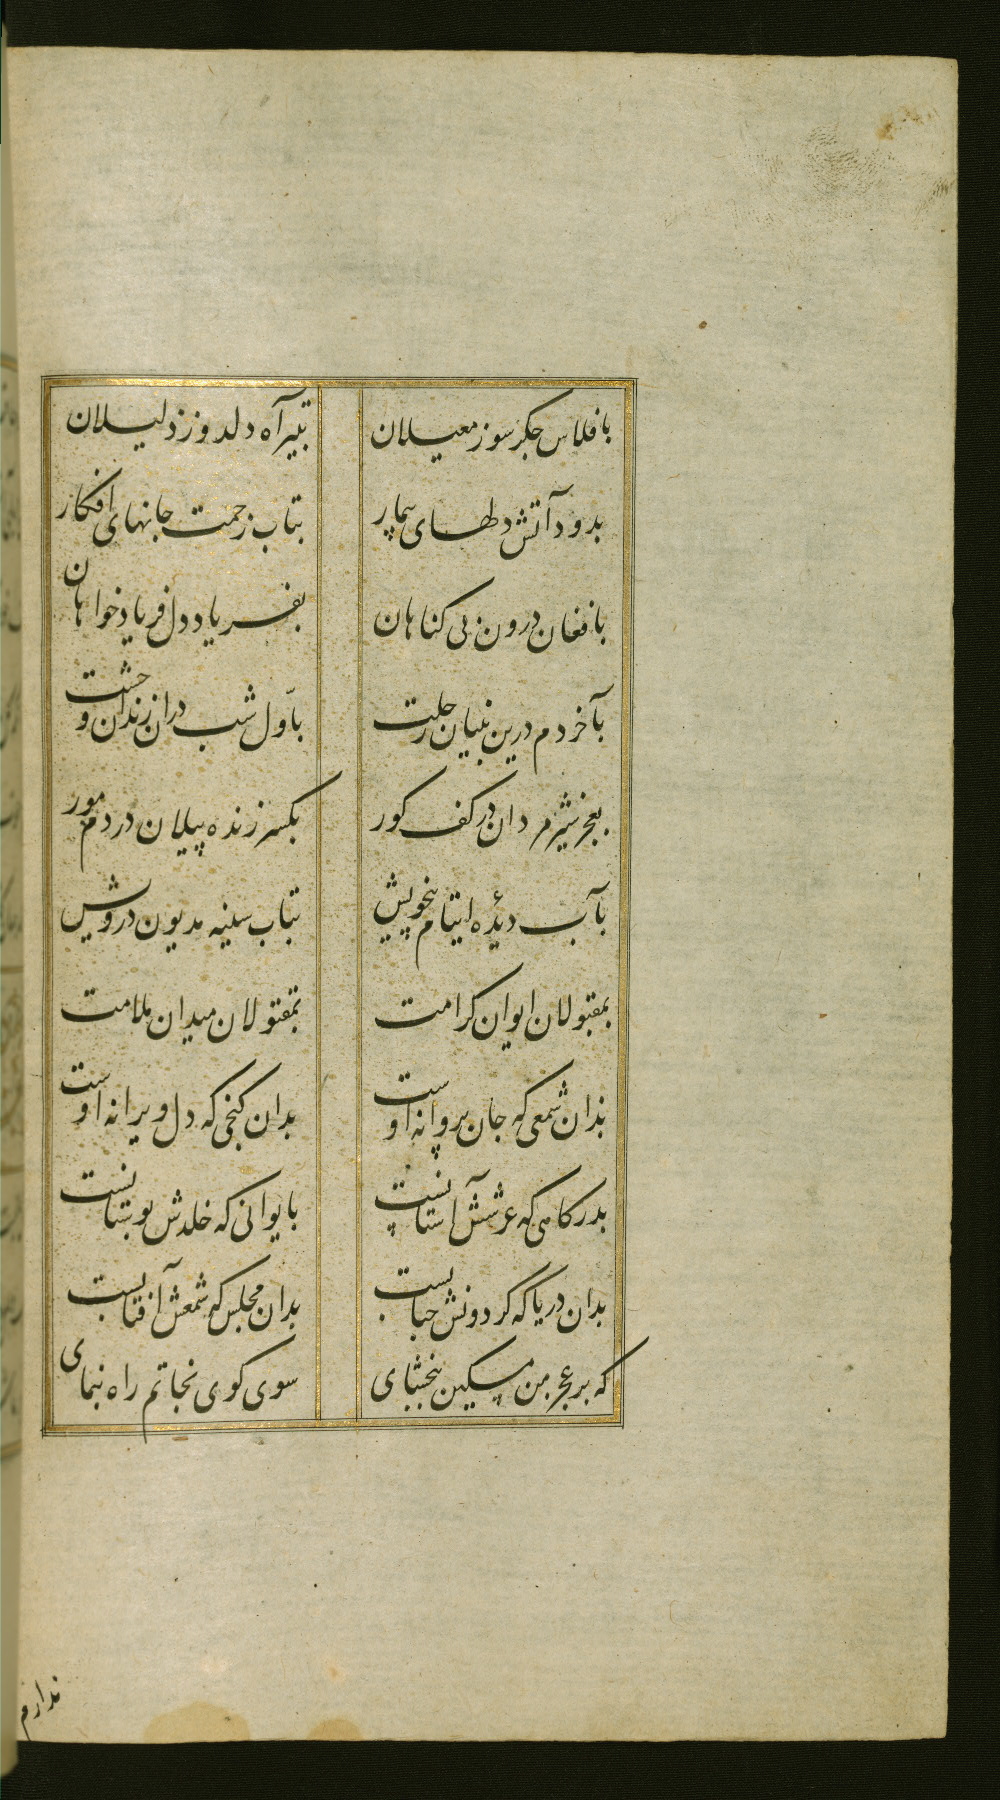 بافلاس جکرسوز معیلان بتیر آه دلدوز ذلیلان
بدود آتش دلهای بیمار بتاب زحمت جانهای افکار
بافغان درون بی کناهان بفریاد دل فریادخواهان
بآخر دم درین بنیان رحلت باّول شب دران زندان وحشت
بعجز شیرمردان در کف کور بکسر زنده پیلان در دم مور
بآب دیدۀ ایتام بیخویش بتاب سینه مدیون درویش
بمقبولان ایوان کرامت بمقتولان میدان ملامت
بدان شمعی که جان پروانه اوست بدان کنجی که دل ویرانه اوست
بدرکاهی که عرشش آستانست بایوانی که خلدش بوستانست
بدان دریا که کردونش حبابست بدان مجلس که شمعش آفتابست
که بر عجز من مسکین ببخشای سوی کوی نجاتم راه بنمای
ندارم